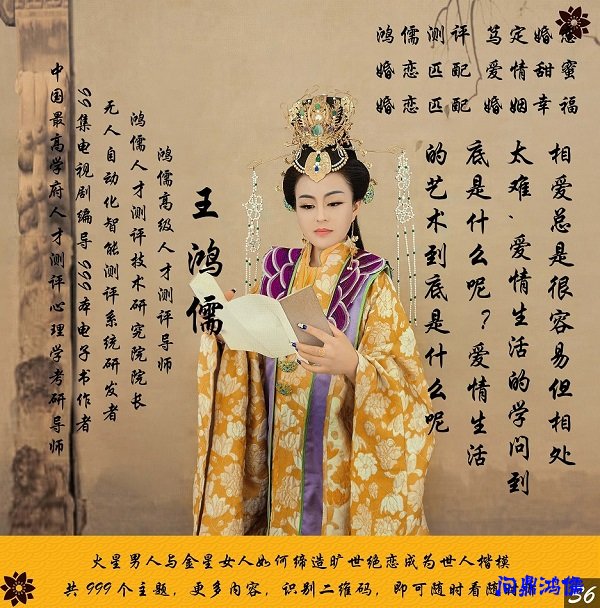 鸿儒测评 笃定婚
婚恋匹配 爱情甜蜜
婚恋匹配 婚姻幸福
相爱总是很容易但相处
太难、爱情生活的学问到
底是什么呢？爱情生活
的艺术到底是什么呢
王鸿儒
鸿儒高级人才测评导师
鸿儒人才测评技术研究院院长
无人自动化智能测评系统研发者
66集电视剧编导 666本电子书作者
中国最高学府人才测评心理学考研导师
火星男人与金星女人如何缔造旷世绝恋成为世人楷模
共999个主题，更多内容，识别二维码，即可随时看随
问鼎鸿儒
36